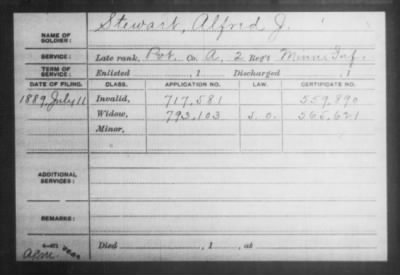 NAME OF SOLDIER: Stewart, Alfred J.
SERVICE: Late rank, Pvt. Co. A, 2 Reg't Minn Inf.
TERM OF SERVICE: Enlisted , 1 Discharged , 1
DATE OF FILING. CLASS. APPLICATION NO. LAW. CERTIFICATE NO.
1889 July 11 Invalid, 717,581 559,890
Widow, 793,103 365,621
Minor,
ADDITIONAL SERVICES:
REMARKS:
Died , 1 , at